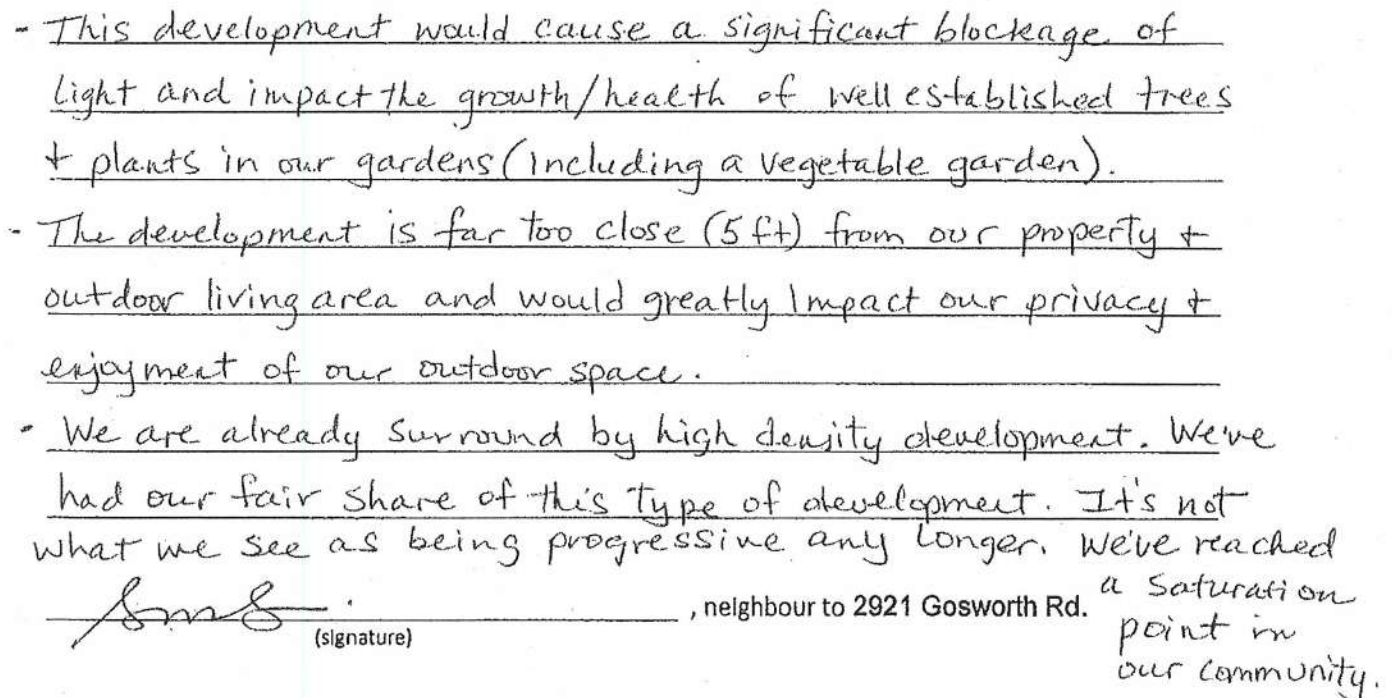 - This development would cause a significant blockage of
light and impact the growth/health of well established trees
+ plants in our gardens (including a vegetable garden).
- The development is far too close (5 ft) from our property +
outdoor living area and would greatly impact our privacy +
enjoyment of our outdoor space.
- We are already surround by high density development. We've
had our fair share of this type of development. It's not
what we see as being progressive any longer. We've reached
a saturation
point in
our community.
, neighbour to 2921 Gosworth Rd.
(signature)